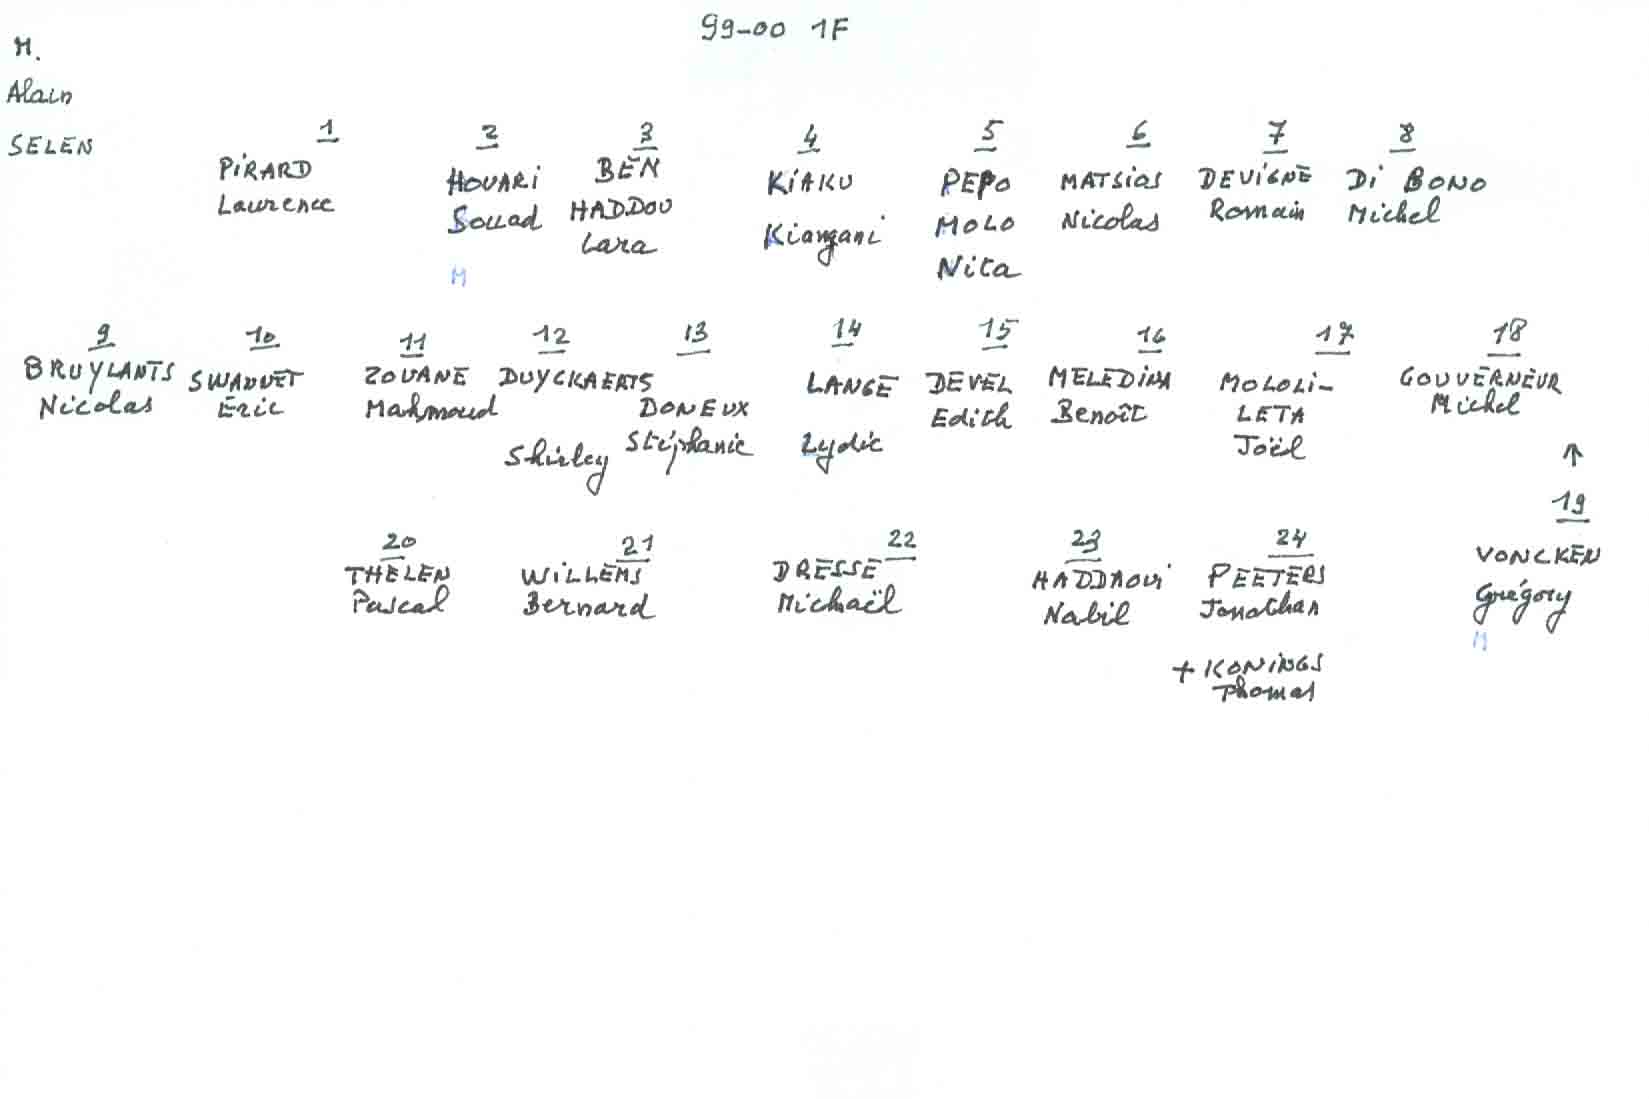 99-00 1F
M.
Alain
SELEN
1 2 3 4 5 6 7 8
PIRARD
Laurence
HOUARI
Souad
M
BEN
HADDOU
Lara
KIAKU
Kiangani
PEPO
MOLO
Nita
MATSIOS
Nicolas
DEVIGNE
Romain
Di BONO
Michel
9 10 11 12 13 14 15 16 17 18
BRUYLANTS
Nicolas
Eric
ZOUANE
Mahmoud
DUYCKAERTS
Shirley
DONEUX
Stéphanie
LANGE
Lydie
DEVEL
Edith
MELEDINA
Benoît
MOLOLI-
LETA
Joël
GOUVERNEUR
Michel
↑
19
VONCKEN
Grégory
M
20 21 22 23 24
THELEN
Pascal
WILLEMS
Bernard
DRESSE
Michaël
HADDAOUI
Nabil
PEETERS
Jonathan
+ KONINGS
Thomas